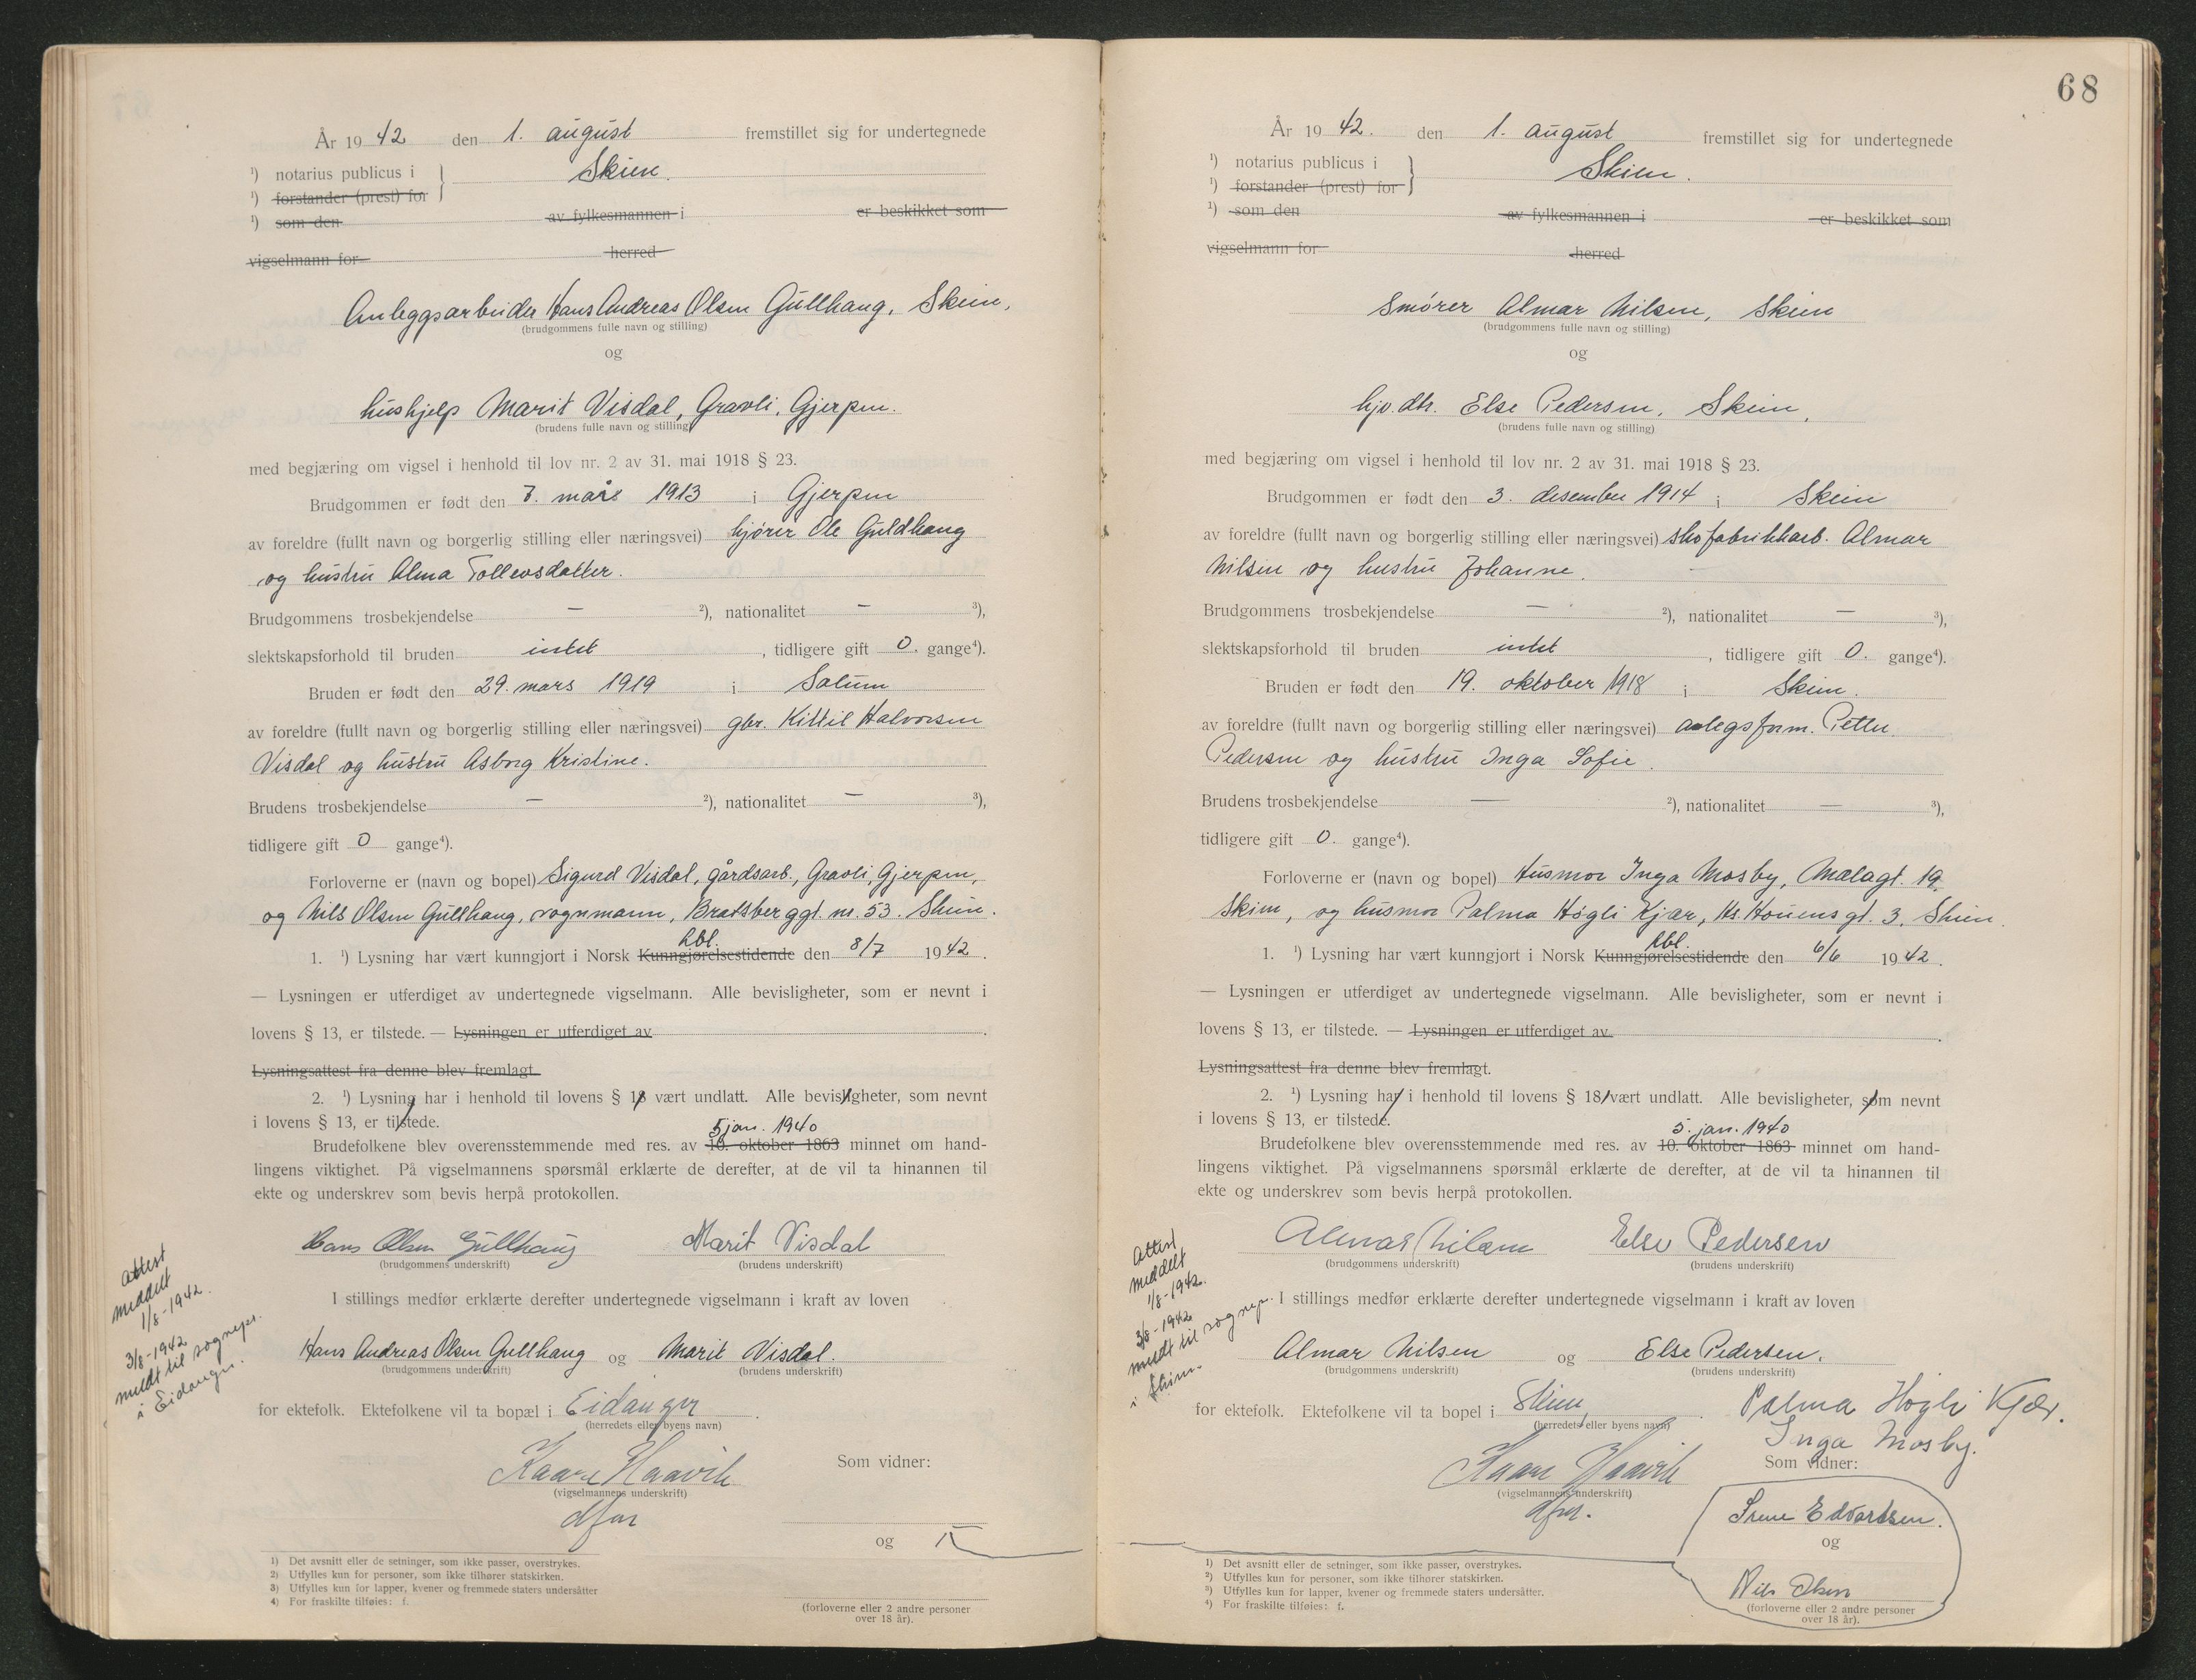 År 1942 den 1. august fremstillet sig for undertegnede
¹) notarius publicus i } Skien.
¹) forstander (prest) for
¹) som den av fylkesmannen i er beskikket som
vigselmann for herred
Anleggsarbeider Hans Andreas Olsen Gullhaug, Skien,
(brudgommens fulle navn og stilling)
og
hushjelp Marit Visdal, Gravli, Gjerpen.
(brudens fulle navn og stilling)
med begjæring om vigsel i henhold til lov nr. 2 av 31. mai 1918 § 23.
Brudgommen er født den 7. mars 1913 i Gjerpen
av foreldre (fullt navn og borgerlig stilling eller næringsvei) kjører Ole Guldhaug
og hustru Alma Tollevsdatter.
Brudgommens trosbekjendelse — ²), nationalitet — ³),
slektskapsforhold til bruden intet, tidligere gift 0. gange⁴).
Bruden er født den 29. mars 1919 i Solum
av foreldre (fullt navn og borgerlig stilling eller næringsvei) gbr. Kittil Halvorsen
Visdal og hustru Asborg Kristine.
Brudens trosbekjendelse — ²), nationalitet — ³),
tidligere gift 0 gange⁴).
Forloverne er (navn og bopel) Sigurd Visdal, gårdsarb., Gravli, Gjerpen,
og Nils Olsen Gullhaug, vognmann, Bratsberggt. nr. 53. Skien.
hbl.
1. ¹) Lysning har vært kunngjort i Norsk Kunngjørelsestidende den 8/7 1942.
— Lysningen er utferdiget av undertegnede vigselmann. Alle bevisligheter, som er nevnt i
lovens § 13, er tilstede. — Lysningen er utferdiget av
Lysningsattest fra denne blev fremlagt.
2. ¹) Lysning har i henhold til lovens § 18 vært undlatt. Alle bevisligheter, som nevnt
i lovens § 13, er tilstede.
5 jan. 1940
Brudefolkene blev overensstemmende med res. av 10. oktober 1863 minnet om hand-
lingens viktighet. På vigselmannens spørsmål erklærte de derefter, at de vil ta hinannen til
ekte og underskrev som bevis herpå protokollen.
Hans Olsen Gullhaug Marit Visdal
(brudgommens underskrift) (brudens underskrift)
I stillings medfør erklærte derefter undertegnede vigselmann i kraft av loven
Hans Andreas Olsen Gullhaug og Marit Visdal.
(brudgommens underskrift) (brudens underskrift)
for ektefolk. Ektefolkene vil ta bopæl i Eidanger.
(herredets eller byens navn)
Kaare Haavik
(vigselmannens underskrift)
dfm
Som vidner:
og
(forloverne eller 2 andre personer
over 18 år).
attest
meddelt
1/8-1942.
3/8-1942
meldt til sognepr.
i Eidanger.
1) Det avsnitt eller de setninger, som ikke passer, overstrykes.
2) Utfylles kun for personer, som ikke tilhører statskirken.
3) Utfylles kun for lapper, kvener og fremmede staters undersåtter
4) For fraskilte tilføies: f.
68
År 1942. den 1. august fremstillet sig for undertegnede
¹) notarius publicus i } Skien.
¹) forstander (prest) for
¹) som den av fylkesmannen i er beskikket som
vigselmann for herred
Smører Almar Nilsen, Skien
(brudgommens fulle navn og stilling)
og
hjv. dtr. Else Pedersen, Skien,
(brudens fulle navn og stilling)
med begjæring om vigsel i henhold til lov nr. 2 av 31. mai 1918 § 23.
Brudgommen er født den 3. desember 1914 i Skien
av foreldre (fullt navn og borgerlig stilling eller næringsvei) skofabrikkarb. Almar
Nilsen og hustru Johanne.
Brudgommens trosbekjendelse — ²), nationalitet — ³),
slektskapsforhold til bruden intet, tidligere gift 0. gange⁴).
Bruden er født den 19. oktober 1918 i Skien.
av foreldre (fullt navn og borgerlig stilling eller næringsvei) anlegsform. Petter
Pedersen og hustru Inga Sofie.
Brudens trosbekjendelse — ²), nationalitet — ³),
tidligere gift 0. gange⁴).
Forloverne er (navn og bopel) Husmor Inga Mosby, Mælagt. 19,
Skien, og husmor Palma Høgli Kjær, Hs. Houens gt. 3, Skien.
hbl.
1. ¹) Lysning har vært kunngjort i Norsk Kunngjørelsestidende den 6/6 1942.
— Lysningen er utferdiget av undertegnede vigselmann. Alle bevisligheter, som er nevnt i
lovens § 13, er tilstede. — Lysningen er utferdiget av
Lysningsattest fra denne blev fremlagt.
2. ¹) Lysning har i henhold til lovens § 18 vært undlatt. Alle bevisligheter, som nevnt
i lovens § 13, er tilstede.
5. jan. 1940
Brudefolkene blev overensstemmende med res. av 10. oktober 1863 minnet om hand-
lingens viktighet. På vigselmannens spørsmål erklærte de derefter, at de vil ta hinannen til
ekte og underskrev som bevis herpå protokollen.
Almar Nilsen Else Pedersen
(brudgommens underskrift) (brudens underskrift)
I stillings medfør erklærte derefter undertegnede vigselmann i kraft av loven
Almar Nilsen og Else Pedersen.
(brudgommens underskrift) (brudens underskrift)
for ektefolk. Ektefolkene vil ta bopel i Skien.
(herredets eller byens navn)
Palma Høgli Kjær.
Inga Mosby.
Kaare Haavik
(vigselmannens underskrift)
dfm.
Som vidner:
Irene Edvardsen.
og
Nils Olsen
(forloverne eller 2 andre personer
over 18 år).
attest
meddelt
1/8-1942.
3/8-1942
meldt til sognepr.
i Skien.
¹) Det avsnitt eller de setninger, som ikke passer, overstrykes.
²) Utfylles kun for personer, som ikke tilhører statskirken.
³) Utfylles kun for lapper, kvener og fremmede staters undersåtter.
⁴) For fraskilte tilføies: f.